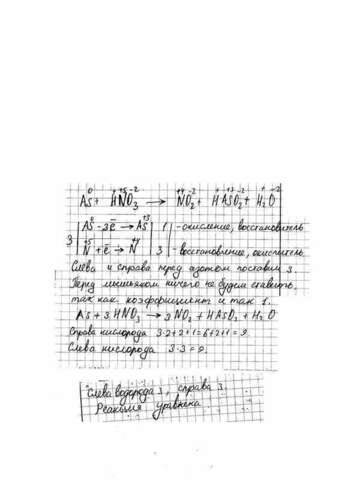 0 +1+5-2 +4-2 + +3-2 + -2
As + HNO₃ → NO₂ + HAsO₂ + H₂O
0 +3
As - 3ē → As | 1 | - окисление, восстановитель
3 +5 +4
N + ē → N | 3 | - восстановление, окислитель
Слева и справа перед азотом поставим 3.
Перед мышьяком ничего не будем ставить,
так как коэффициент и так 1.
As + 3HNO₃ → 3NO₂ + HAsO₂ + H₂O
Справа кислорода 3·2+2+1=6+2+1=9
Слева кислорода 3·3=9.
Слева водорода 3, справа 3.
Реакция уравнена